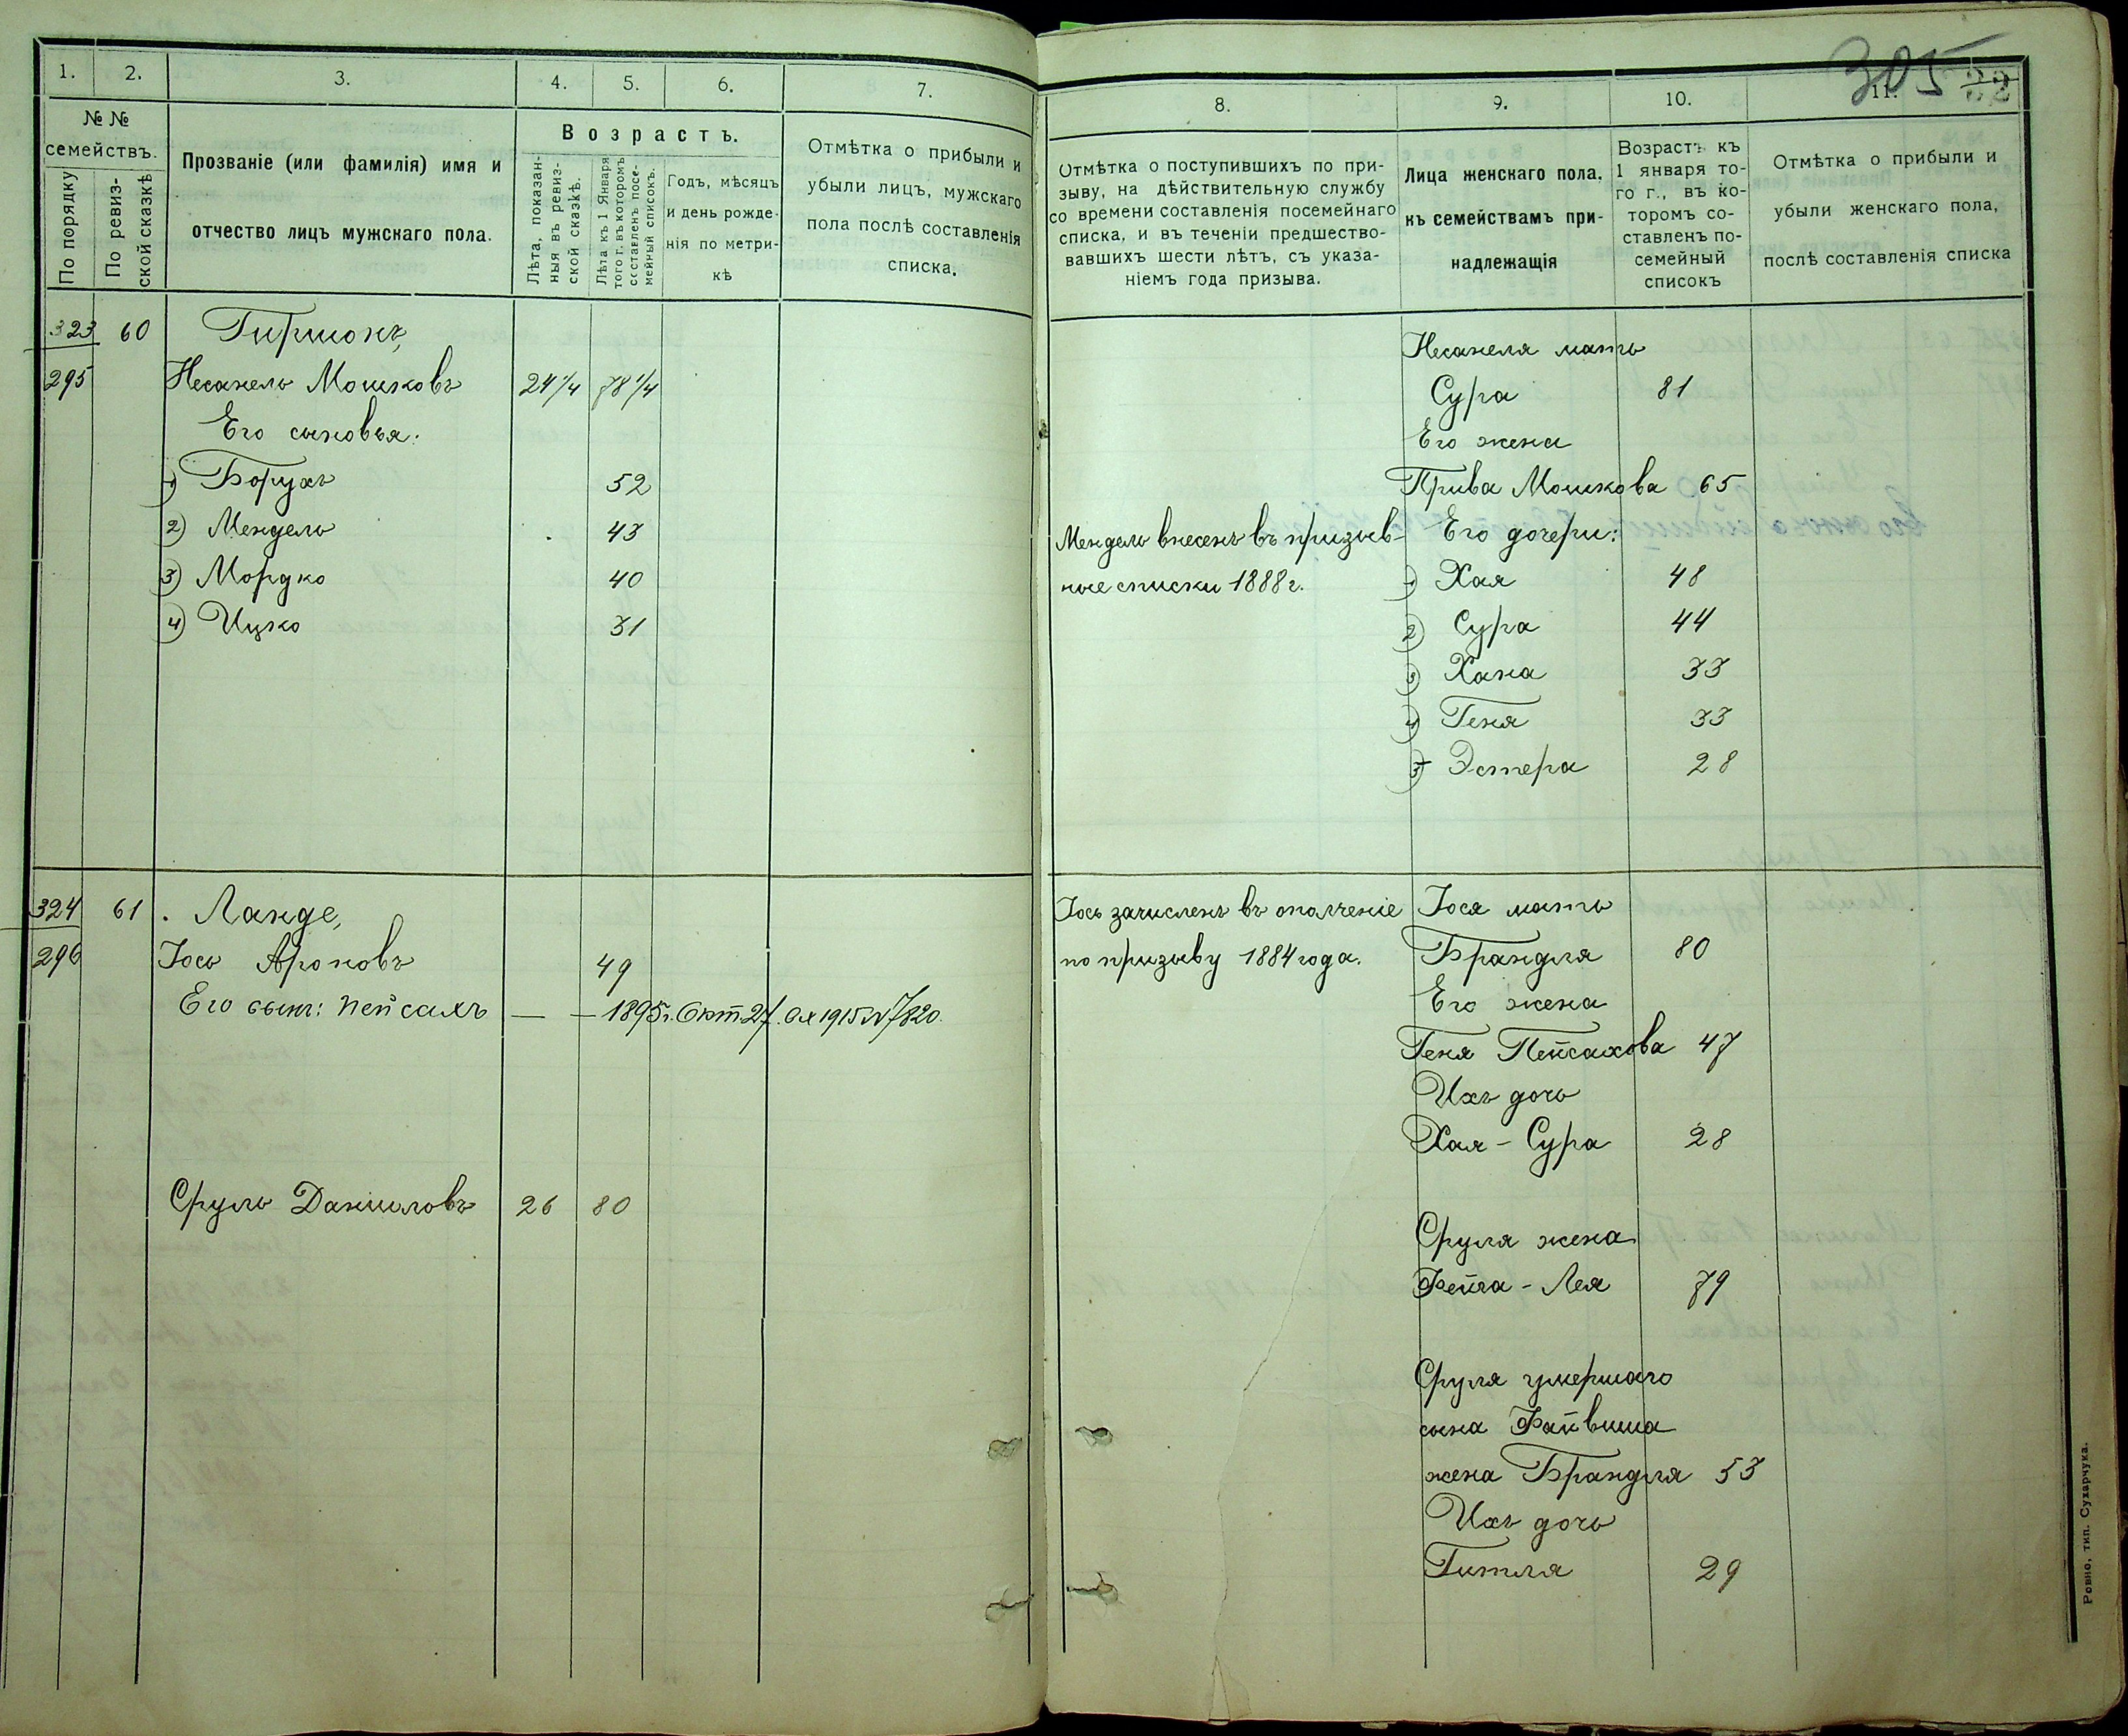 305
1.
2.
3.
4.
5.
6.
7.
№ №
семействъ.
По порядку
По ревиз-
ской сказкѣ
Прозваніе (или фамилія) имя и
отчество лицъ мужскаго пола.
Возрастъ.
Лѣта, показан-
ныя въ ревиз-
ской сказкѣ.
Лѣта къ 1 Января
того г. въ которомъ
составленъ посе-
мейный списокъ.
Годъ, мѣсяцъ
и день рожде-
нія по метри-
кѣ
Отмѣтка о прибыли и
убыли лицъ, мужскаго
пола послѣ составленія
списка.
323 60 Гиршонъ,
295 Несанель Мошковъ 24 1/4 78 1/4
Его сыновья:
1) Борухъ 52
2) Мендель 43
3) Мордко 40
4) Ицко 31
324 61 Ланде,
296 Іось Ароновъ 49
Его сынъ: Пейсахъ — — 1895г. Окт 27. Ох 1915 № 7820.
Сруль Даниловъ 26 80
8.
9.
10.
11.
Отмѣтка о поступившихъ по при-
зыву, на дѣйствительную службу
со времени составленія посемейнаго
списка, и въ теченіи предшество-
вавшихъ шести лѣтъ, съ указа-
ніемъ года призыва.
Лица женскаго пола.
къ семействамъ при-
надлежащія
Возрастъ къ
1 января то-
го г., въ ко-
торомъ со-
ставленъ по-
семейный
списокъ
Отмѣтка о прибыли и
убыли женскаго пола,
послѣ составленія списка
Несанеля мать
Сура 81
Его жена
Прива Мошкова 65
Мендель внесенъ въ призыв- Его дочери:
ные списки 1888 г. 1) Хая 48
2) Сура 44
3) Хана 33
4) Геня 33
5) Эстера 28
Іось зачисленъ въ ополченіе Іося мать
по призыву 1884 года. Брандля 80
Его жена
Геня Пейсахова 47
Ихъ дочь
Хая-Сура 28
Сруля жена
Фейга-Лея 79
Сруля умершаго
сына Файвиша
жена Брандля 53
Ихъ дочь
Гитля 29
Ровно, тип. Сухарчука.